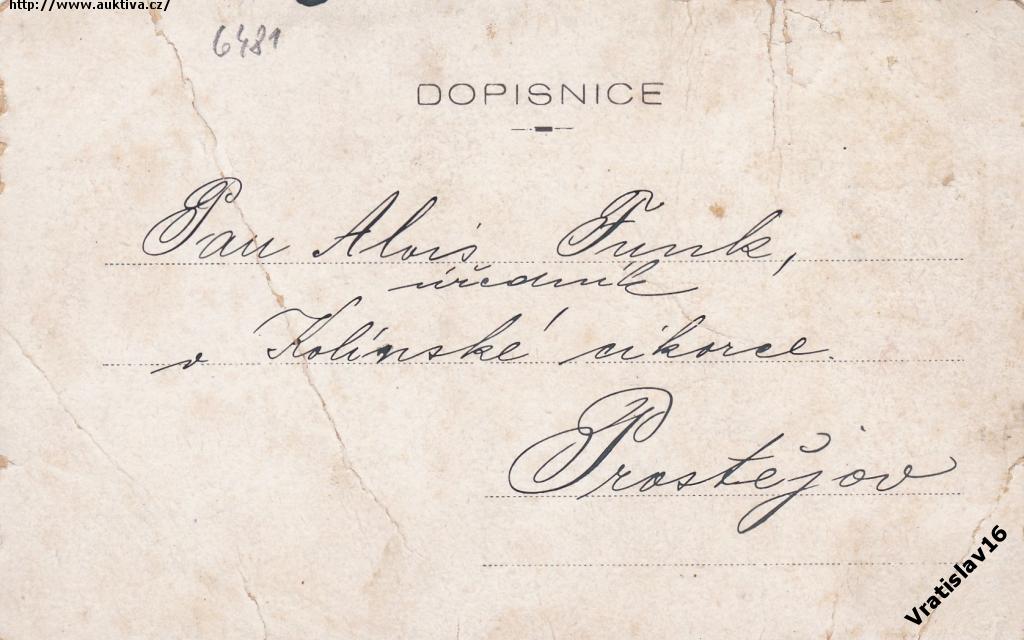 http://www.auktiva.cz/
6481
DOPISNICE
Pan Alois Funk,
úředník
v Kolínské cikorce.
Prostějov
Vratislav16